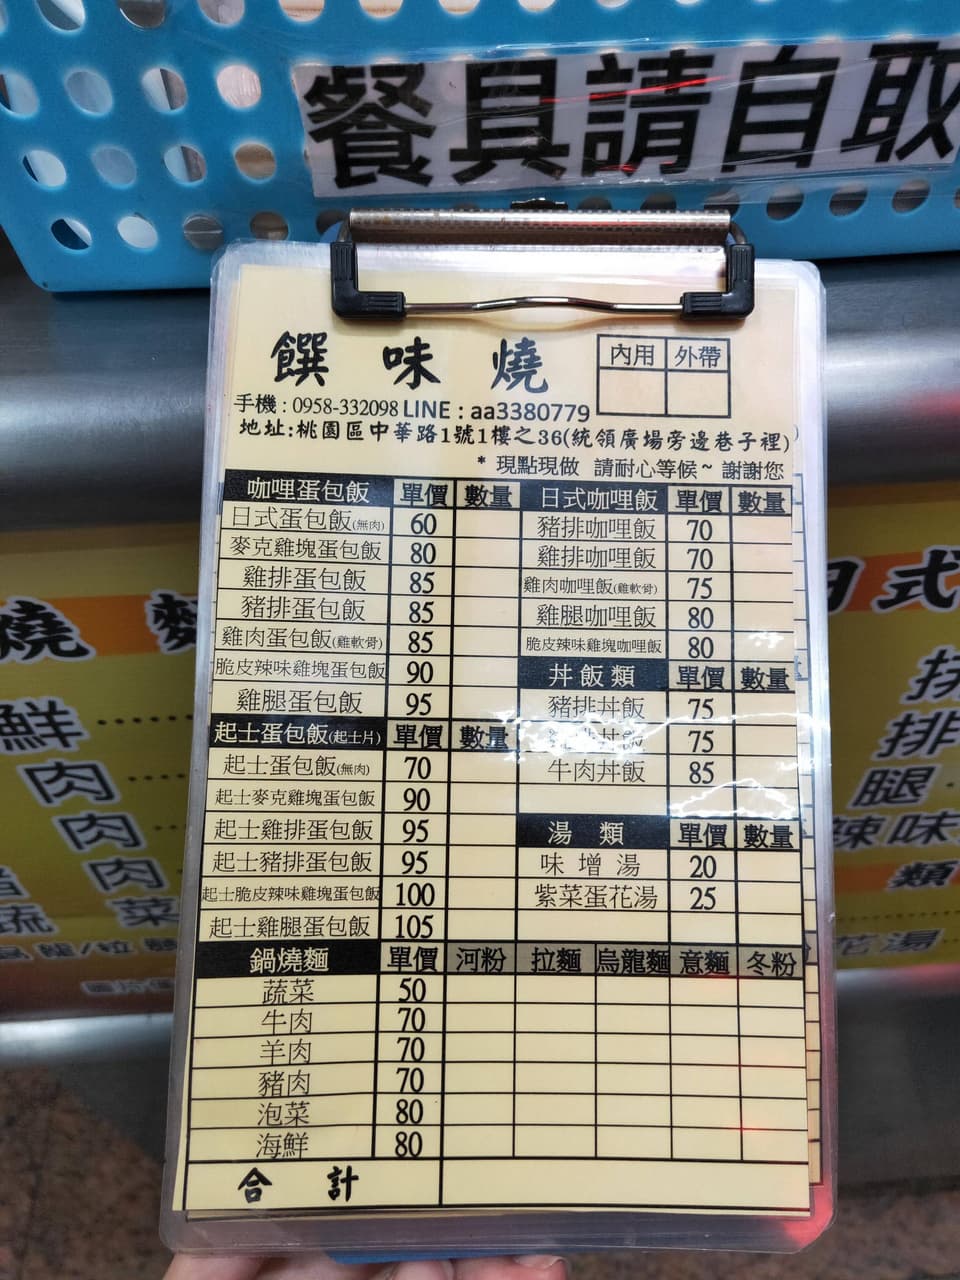 餐具請自取
饌味燒
內用 外帶
手機：0958-332098 LINE：aa3380779
地址:桃園區中華路1號1樓之36(統領廣場旁邊巷子裡)
* 現點現做 請耐心等候~ 謝謝您
咖哩蛋包飯 單價 數量
日式蛋包飯(無肉) 60
麥克雞塊蛋包飯 80
雞排蛋包飯 85
豬排蛋包飯 85
雞肉蛋包飯(雞軟骨) 85
脆皮辣味雞塊蛋包飯 90
雞腿蛋包飯 95
起士蛋包飯(起士片) 單價 數量
起士蛋包飯(無肉) 70
起士麥克雞塊蛋包飯 90
起士雞排蛋包飯 95
起士豬排蛋包飯 95
起士脆皮辣味雞塊蛋包飯 100
起士雞腿蛋包飯 105
日式咖哩飯 單價 數量
豬排咖哩飯 70
雞排咖哩飯 70
雞肉咖哩飯(雞軟骨) 75
雞腿咖哩飯 80
脆皮辣味雞塊咖哩飯 80
丼飯類 單價 數量
豬排丼飯 75
排丼飯 75
牛肉丼飯 85
湯類 單價 數量
味增湯 20
紫菜蛋花湯 25
鍋燒麵 單價 河粉 拉麵 烏龍麵 意麵 冬粉
蔬菜 50
牛肉 70
羊肉 70
豬肉 70
泡菜 80
海鮮 80
合計
燒
鮮
肉
肉
肉
蔬菜
日式
排
排
腿
辣味
類
花湯